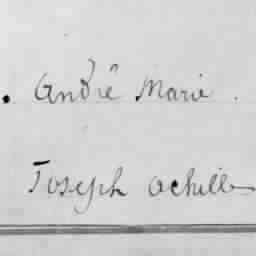 André Marie.
Joseph Achille